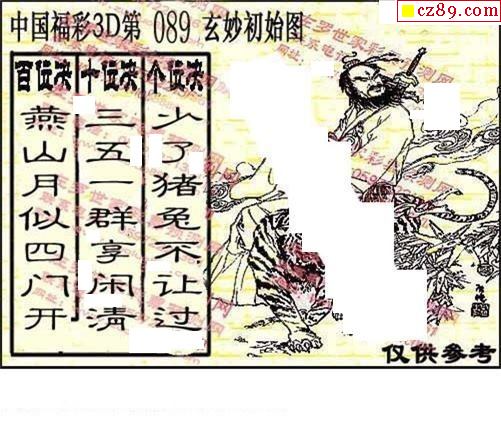 cz89.com
中国福彩3D第 089 玄妙初始图
百位决 十位决 个位决
燕山月似四门开
三五一群享闲清
少了猪兔不让过
仅供参考